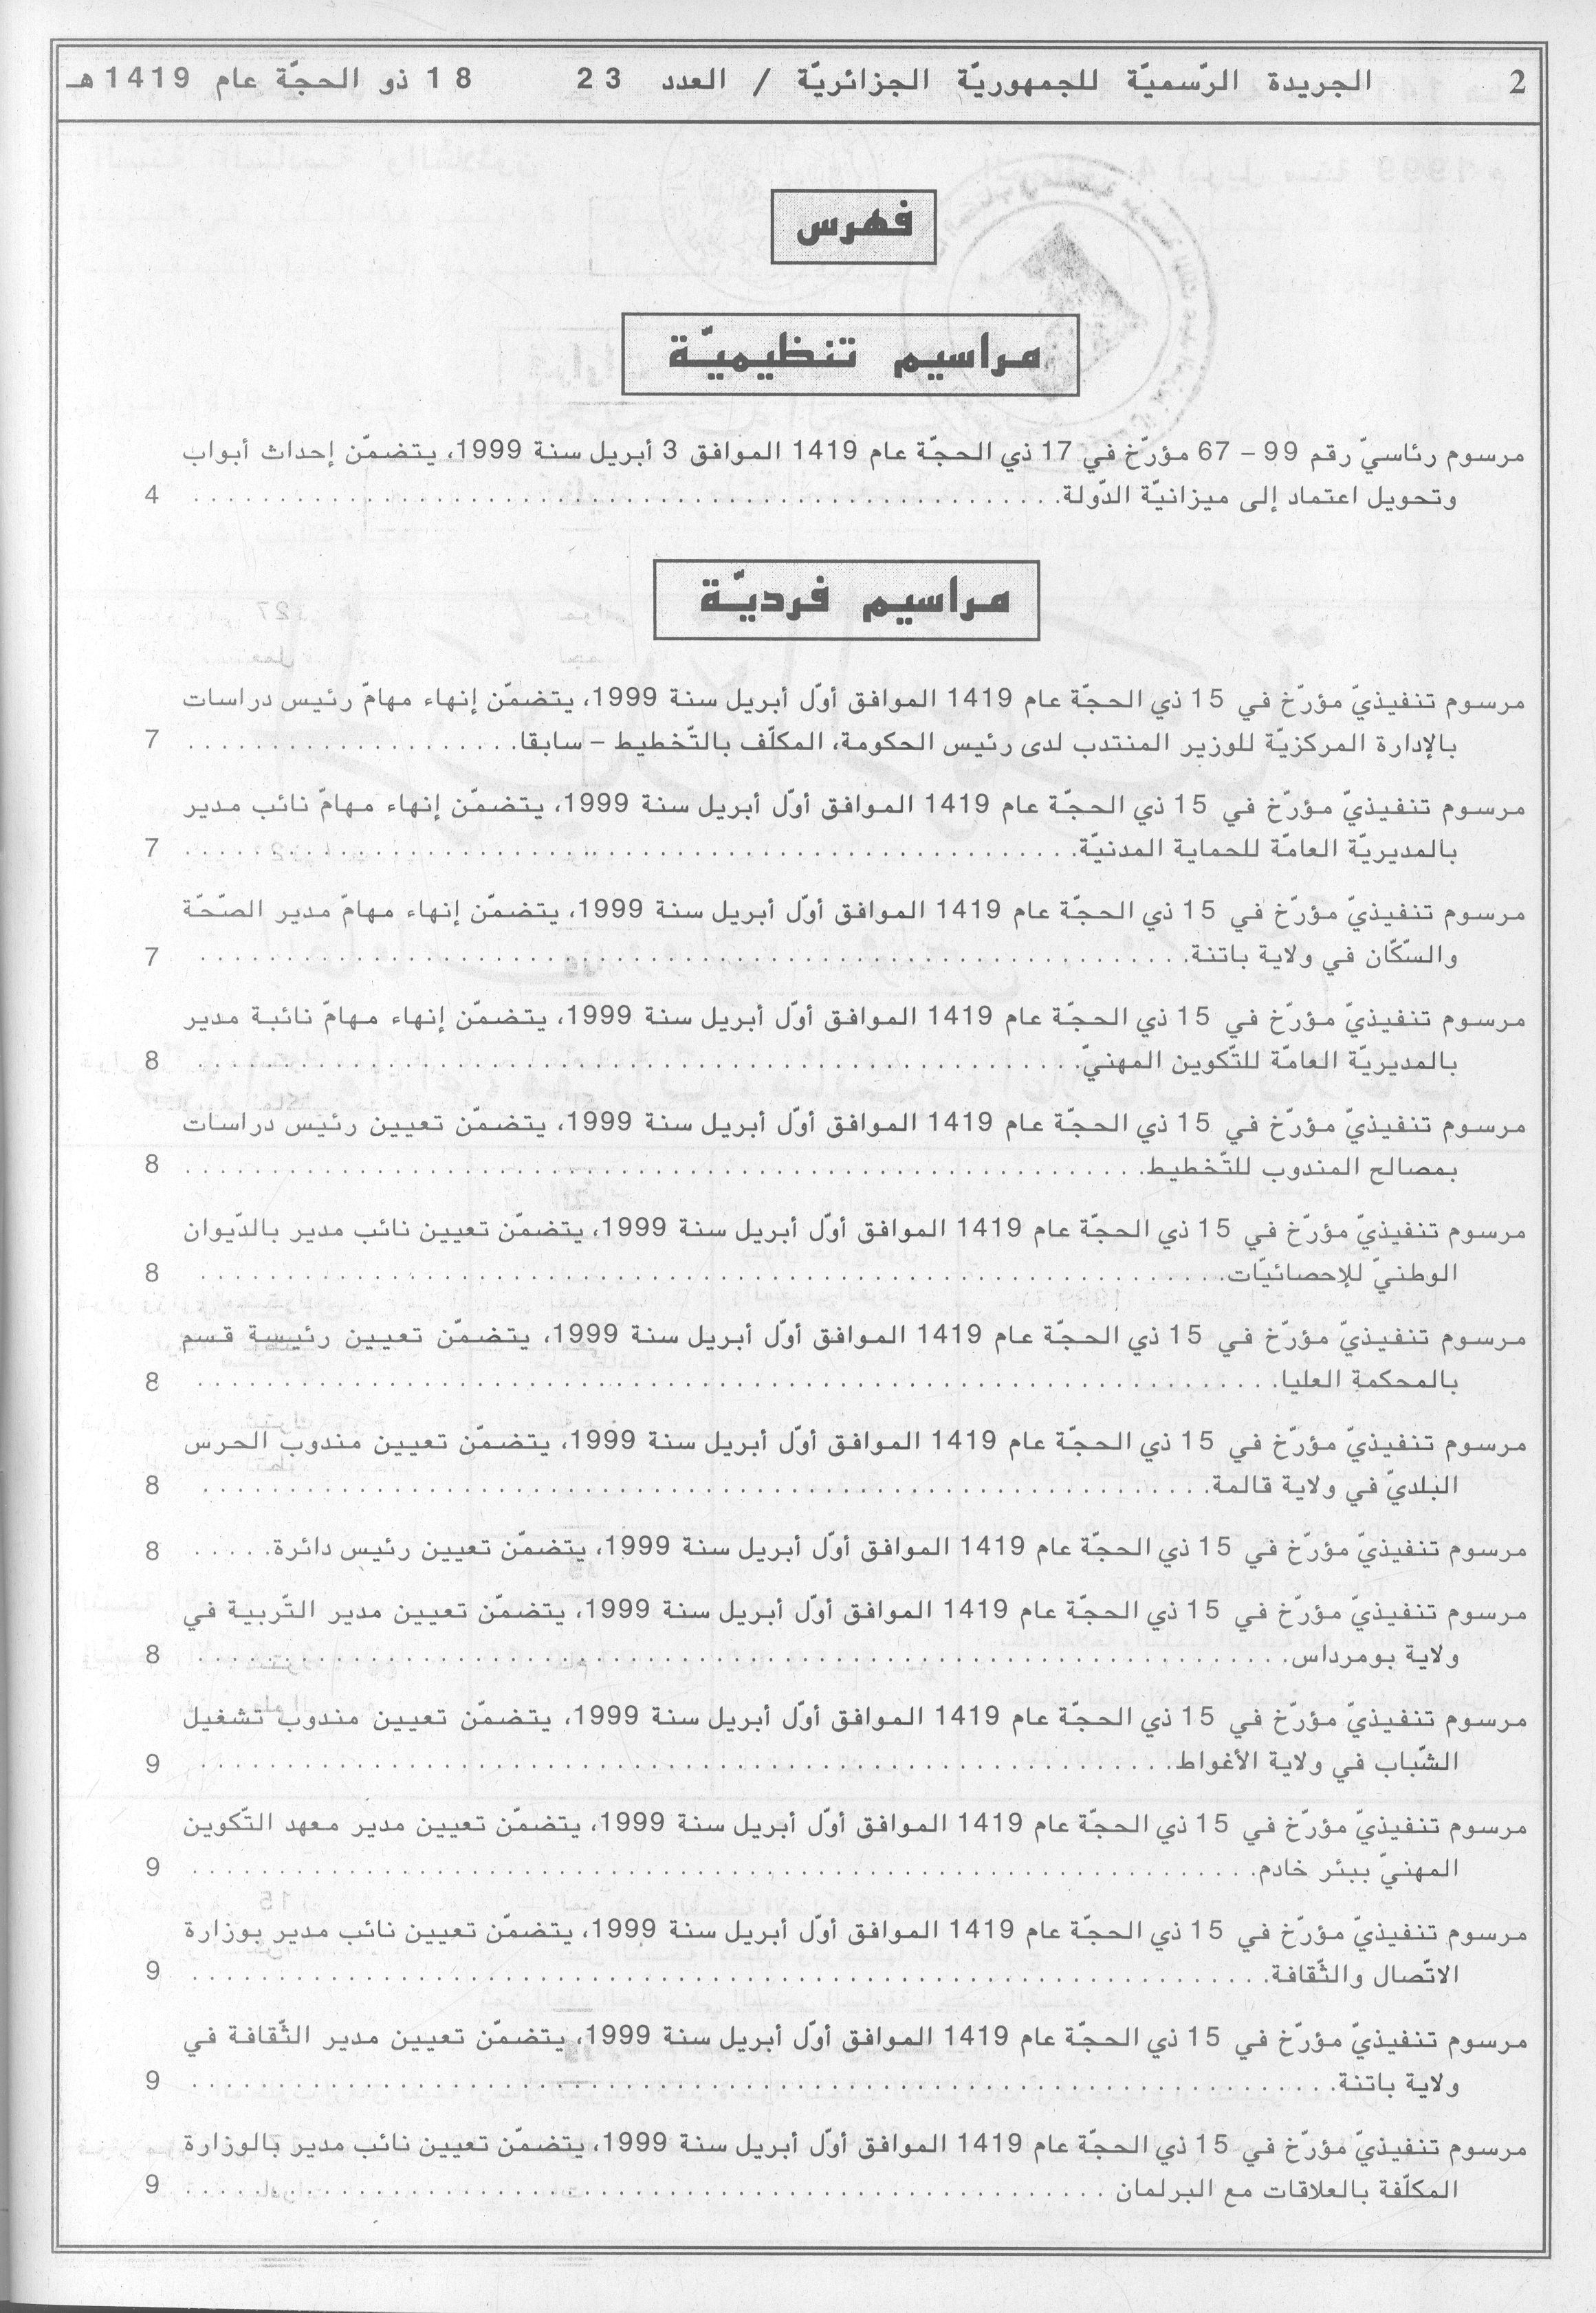 2 الجريدة الرّسميّة للجمهوريّة الجزائريّة / العدد 23 18 ذو الحجّة عام 1419 هـ
فهرس
مراسيم تنظيميّة
مرسوم رئاسيّ رقم 99 – 67 مؤرّخ في 17 ذي الحجّة عام 1419 الموافق 3 أبريل سنة 1999، يتضمّن إحداث أبواب
وتحويل اعتماد إلى ميزانيّة الدّولة. . . . . . . . . . 4
مراسيم فرديّة
مرسوم تنفيذيّ مؤرّخ في 15 ذي الحجّة عام 1419 الموافق أوّل أبريل سنة 1999، يتضمّن إنهاء مهامّ رئيس دراسات
بالإدارة المركزيّة للوزير المنتدب لدى رئيس الحكومة، المكلّف بالتّخطيط – سابقا. . . . . . . . . . 7
مرسوم تنفيذيّ مؤرّخ في 15 ذي الحجّة عام 1419 الموافق أوّل أبريل سنة 1999، يتضمّن إنهاء مهامّ نائب مدير
بالمديريّة العامّة للحماية المدنيّة. . . . . . . . . . 7
مرسوم تنفيذيّ مؤرّخ في 15 ذي الحجّة عام 1419 الموافق أوّل أبريل سنة 1999، يتضمّن إنهاء مهامّ مدير الصّحّة
والسّكّان في ولاية باتنة. . . . . . . . . . 7
مرسوم تنفيذيّ مؤرّخ في 15 ذي الحجّة عام 1419 الموافق أوّل أبريل سنة 1999، يتضمّن إنهاء مهامّ نائبة مدير
بالمديريّة العامّة للتّكوين المهنيّ. . . . . . . . . . 8
مرسوم تنفيذيّ مؤرّخ في 15 ذي الحجّة عام 1419 الموافق أوّل أبريل سنة 1999، يتضمّن تعيين رئيس دراسات
بمصالح المندوب للتّخطيط. . . . . . . . . . 8
مرسوم تنفيذيّ مؤرّخ في 15 ذي الحجّة عام 1419 الموافق أوّل أبريل سنة 1999، يتضمّن تعيين نائب مدير بالدّيوان
الوطنيّ للإحصائيّات. . . . . . . . . . 8
مرسوم تنفيذيّ مؤرّخ في 15 ذي الحجّة عام 1419 الموافق أوّل أبريل سنة 1999، يتضمّن تعيين رئيسة قسم
بالمحكمة العليا. . . . . . . . . . 8
مرسوم تنفيذيّ مؤرّخ في 15 ذي الحجّة عام 1419 الموافق أوّل أبريل سنة 1999، يتضمّن تعيين مندوب الحرس
البلديّ في ولاية قالمة. . . . . . . . . . 8
مرسوم تنفيذيّ مؤرّخ في 15 ذي الحجّة عام 1419 الموافق أوّل أبريل سنة 1999، يتضمّن تعيين رئيس دائرة. . . . . . 8
مرسوم تنفيذيّ مؤرّخ في 15 ذي الحجّة عام 1419 الموافق أوّل أبريل سنة 1999، يتضمّن تعيين مدير التّربية في
ولاية بومرداس. . . . . . . . . . 8
مرسوم تنفيذيّ مؤرّخ في 15 ذي الحجّة عام 1419 الموافق أوّل أبريل سنة 1999، يتضمّن تعيين مندوب تشغيل
الشّباب في ولاية الأغواط. . . . . . . . . . 9
مرسوم تنفيذيّ مؤرّخ في 15 ذي الحجّة عام 1419 الموافق أوّل أبريل سنة 1999، يتضمّن تعيين مدير معهد التّكوين
المهنيّ ببئر خادم. . . . . . . . . . 9
مرسوم تنفيذيّ مؤرّخ في 15 ذي الحجّة عام 1419 الموافق أوّل أبريل سنة 1999، يتضمّن تعيين نائب مدير بوزارة
الاتّصال والثّقافة. . . . . . . . . . 9
مرسوم تنفيذيّ مؤرّخ في 15 ذي الحجّة عام 1419 الموافق أوّل أبريل سنة 1999، يتضمّن تعيين مدير الثّقافة في
ولاية باتنة. . . . . . . . . . 9
مرسوم تنفيذيّ مؤرّخ في 15 ذي الحجّة عام 1419 الموافق أوّل أبريل سنة 1999، يتضمّن تعيين نائب مدير بالوزارة
المكلّفة بالعلاقات مع البرلمان . . . . . . . . . . 9